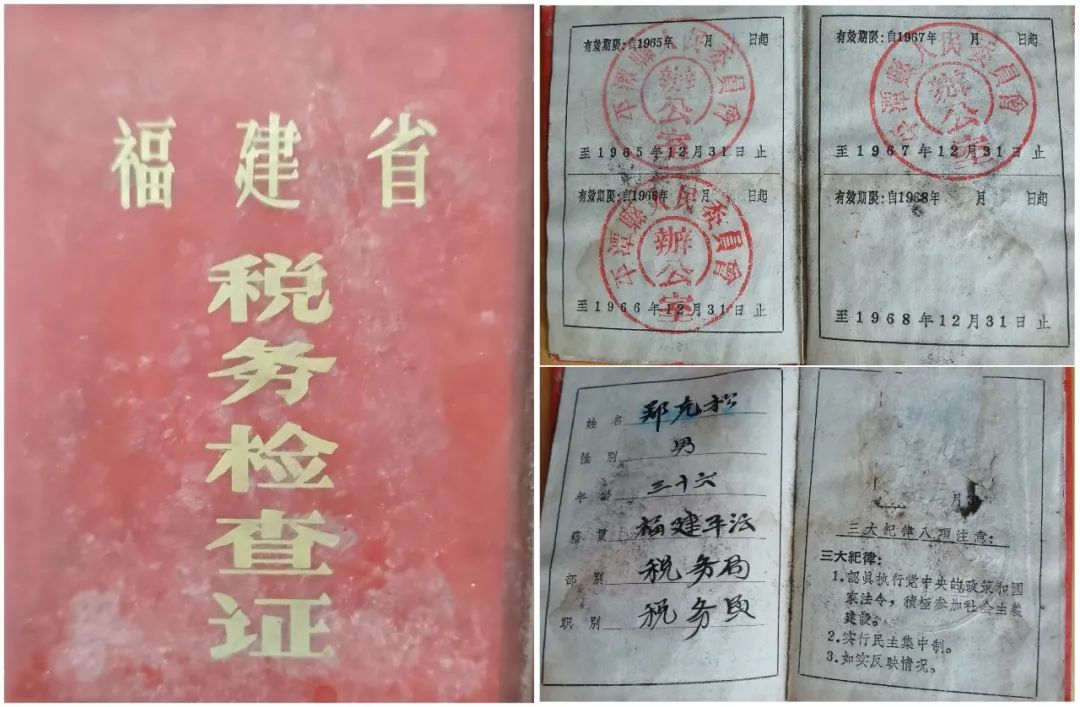 福建省
税务检查证
有效期限:自1965年 月 日起
平潭縣人民委員會
辦公室
至1965年12月31日止
有效期限:自1966年 月 日起
平潭縣人民委員會
辦公室
至1966年12月31日止
有效期限:自1967年 月 日起
平潭縣人民委員會
辦公室
至1967年12月31日止
有效期限:自1968年 月 日起
至1968年12月31日止
姓名 郑克松
性别 男
年龄 三十六
籍貫 福建平沄
部别 税务局
职别 税务员
月
三大紀律八項注意:
三大紀律:
1.認眞执行党中央的政策和國
家法令,積極参加社会主義
建設。
2.实行民主集中制。
3.如实反映情况。